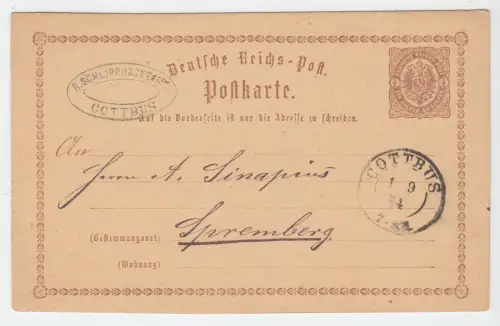 Deutsche Reichs-Post.
Postkarte.
COTTBUS
Auf die Vorderseite ist nur die Adresse zu schreiben.
An
Herrn A. Sinapius
COTTBUS
1 9
Spremberg
(Bestimmungsort)
(Wohnung)